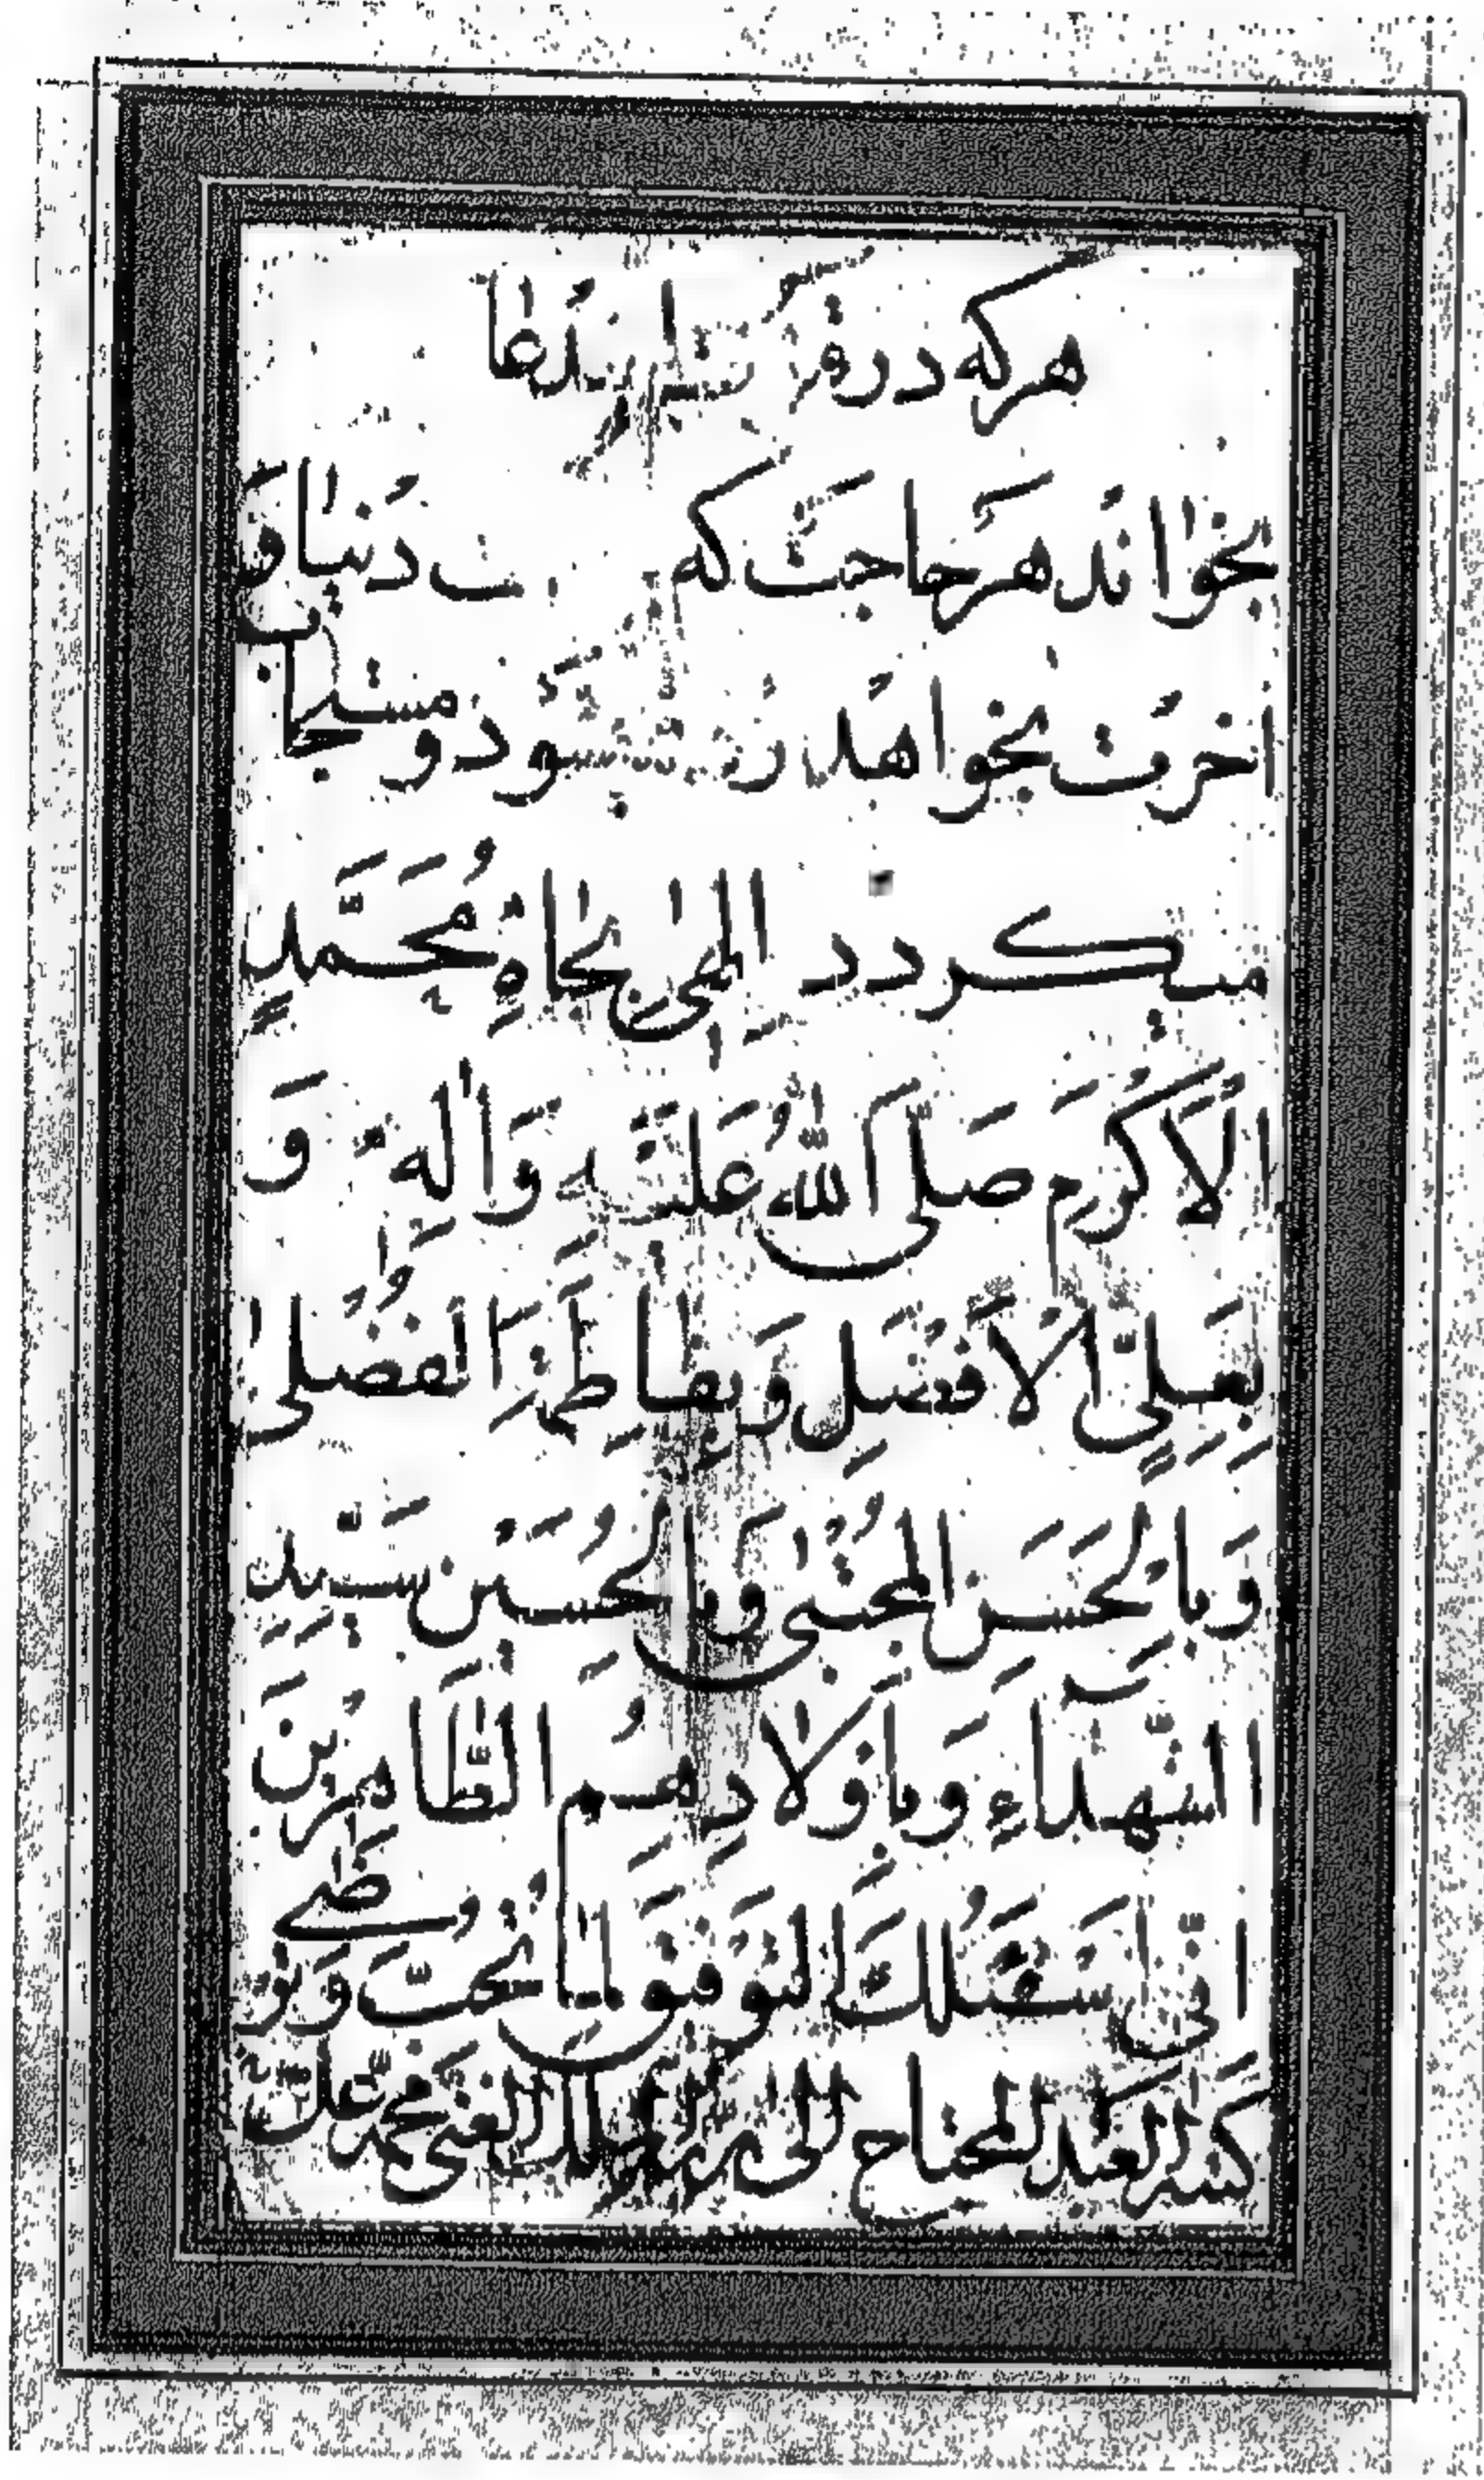 هرکه در این دعا
بخواند هر حاجت که دنیا و
آخرت بخواهد شود و مستجاب
میکردد اِلٰهی بِجاهِ مُحَمَّدٍ
الْاَکْرَم صَلَی اللّٰهُ عَلَیْهِ وَاٰلِهِ وَ
بِعَلِیٍّ الْاَفْضَلِ وَ بِفاطِمَةَ الْفُضْلیٰ
وَ بِالْحَسَنِ الْمُجْتَبیٰ وَ بِالْحُسَیْنِ سَیِّدِ
الشُّهَدآءِ وَ بِاَوْلادِهِمِ الطّاهِرینَ
اِنّی اَسْئَلُکَ التَّوْفیقَ لِما تُحِبُّ وَ تَرْضیٰ
کتبه العبد المحتاج الی الملک الغنی محمد علی